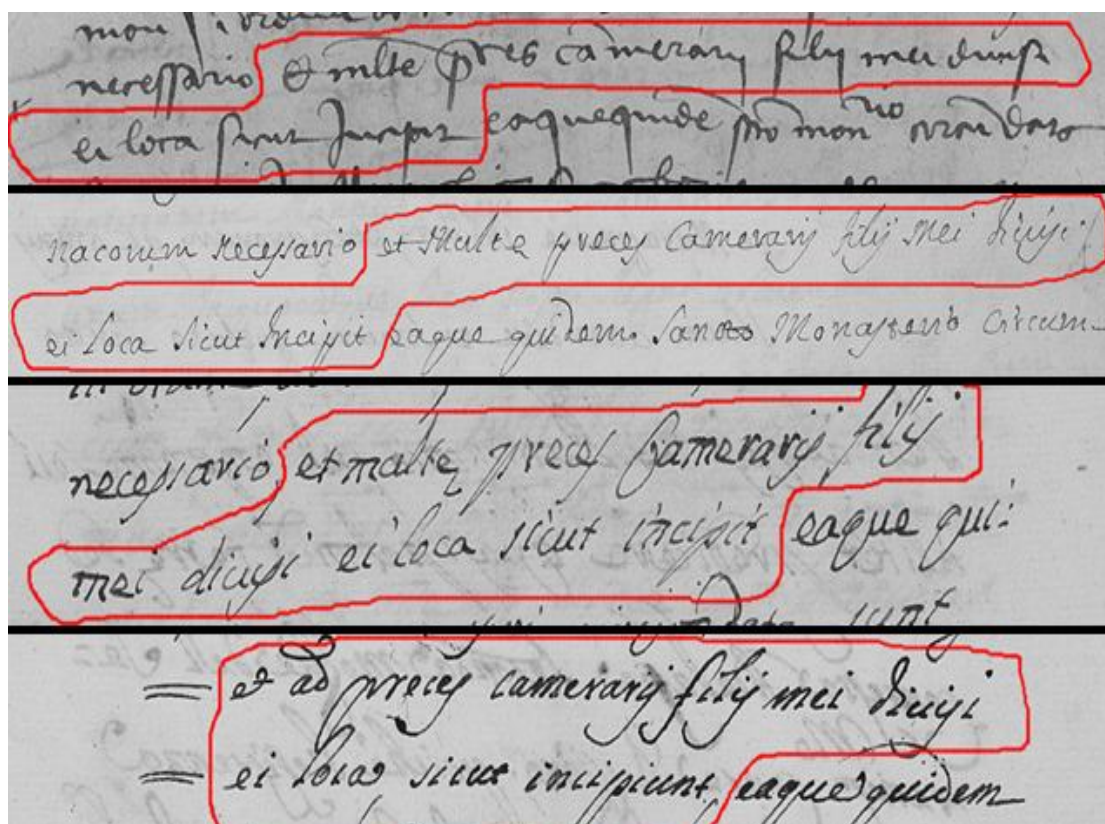 necessario et mlte pres camerarij filij mei diuisi
ei loca sicut Incipit eaquequide sto mon rio
nacorum necessario et Multe preces Camerarij filij Mei diuisi
ei loca sicut Incipit eaque quidem Sancto Monasterio Circum
necessario, et multe preces Camerarij filij
mei diuisi ei loca sicut incipit eaque qui:
sunt
et ad preces camerarij filij mei diuisi
ei loca sicut incipiunt, eaque quidem